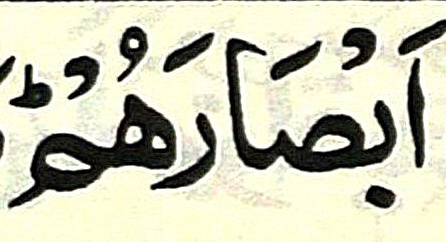 اَبْصَارَهُمْؕ